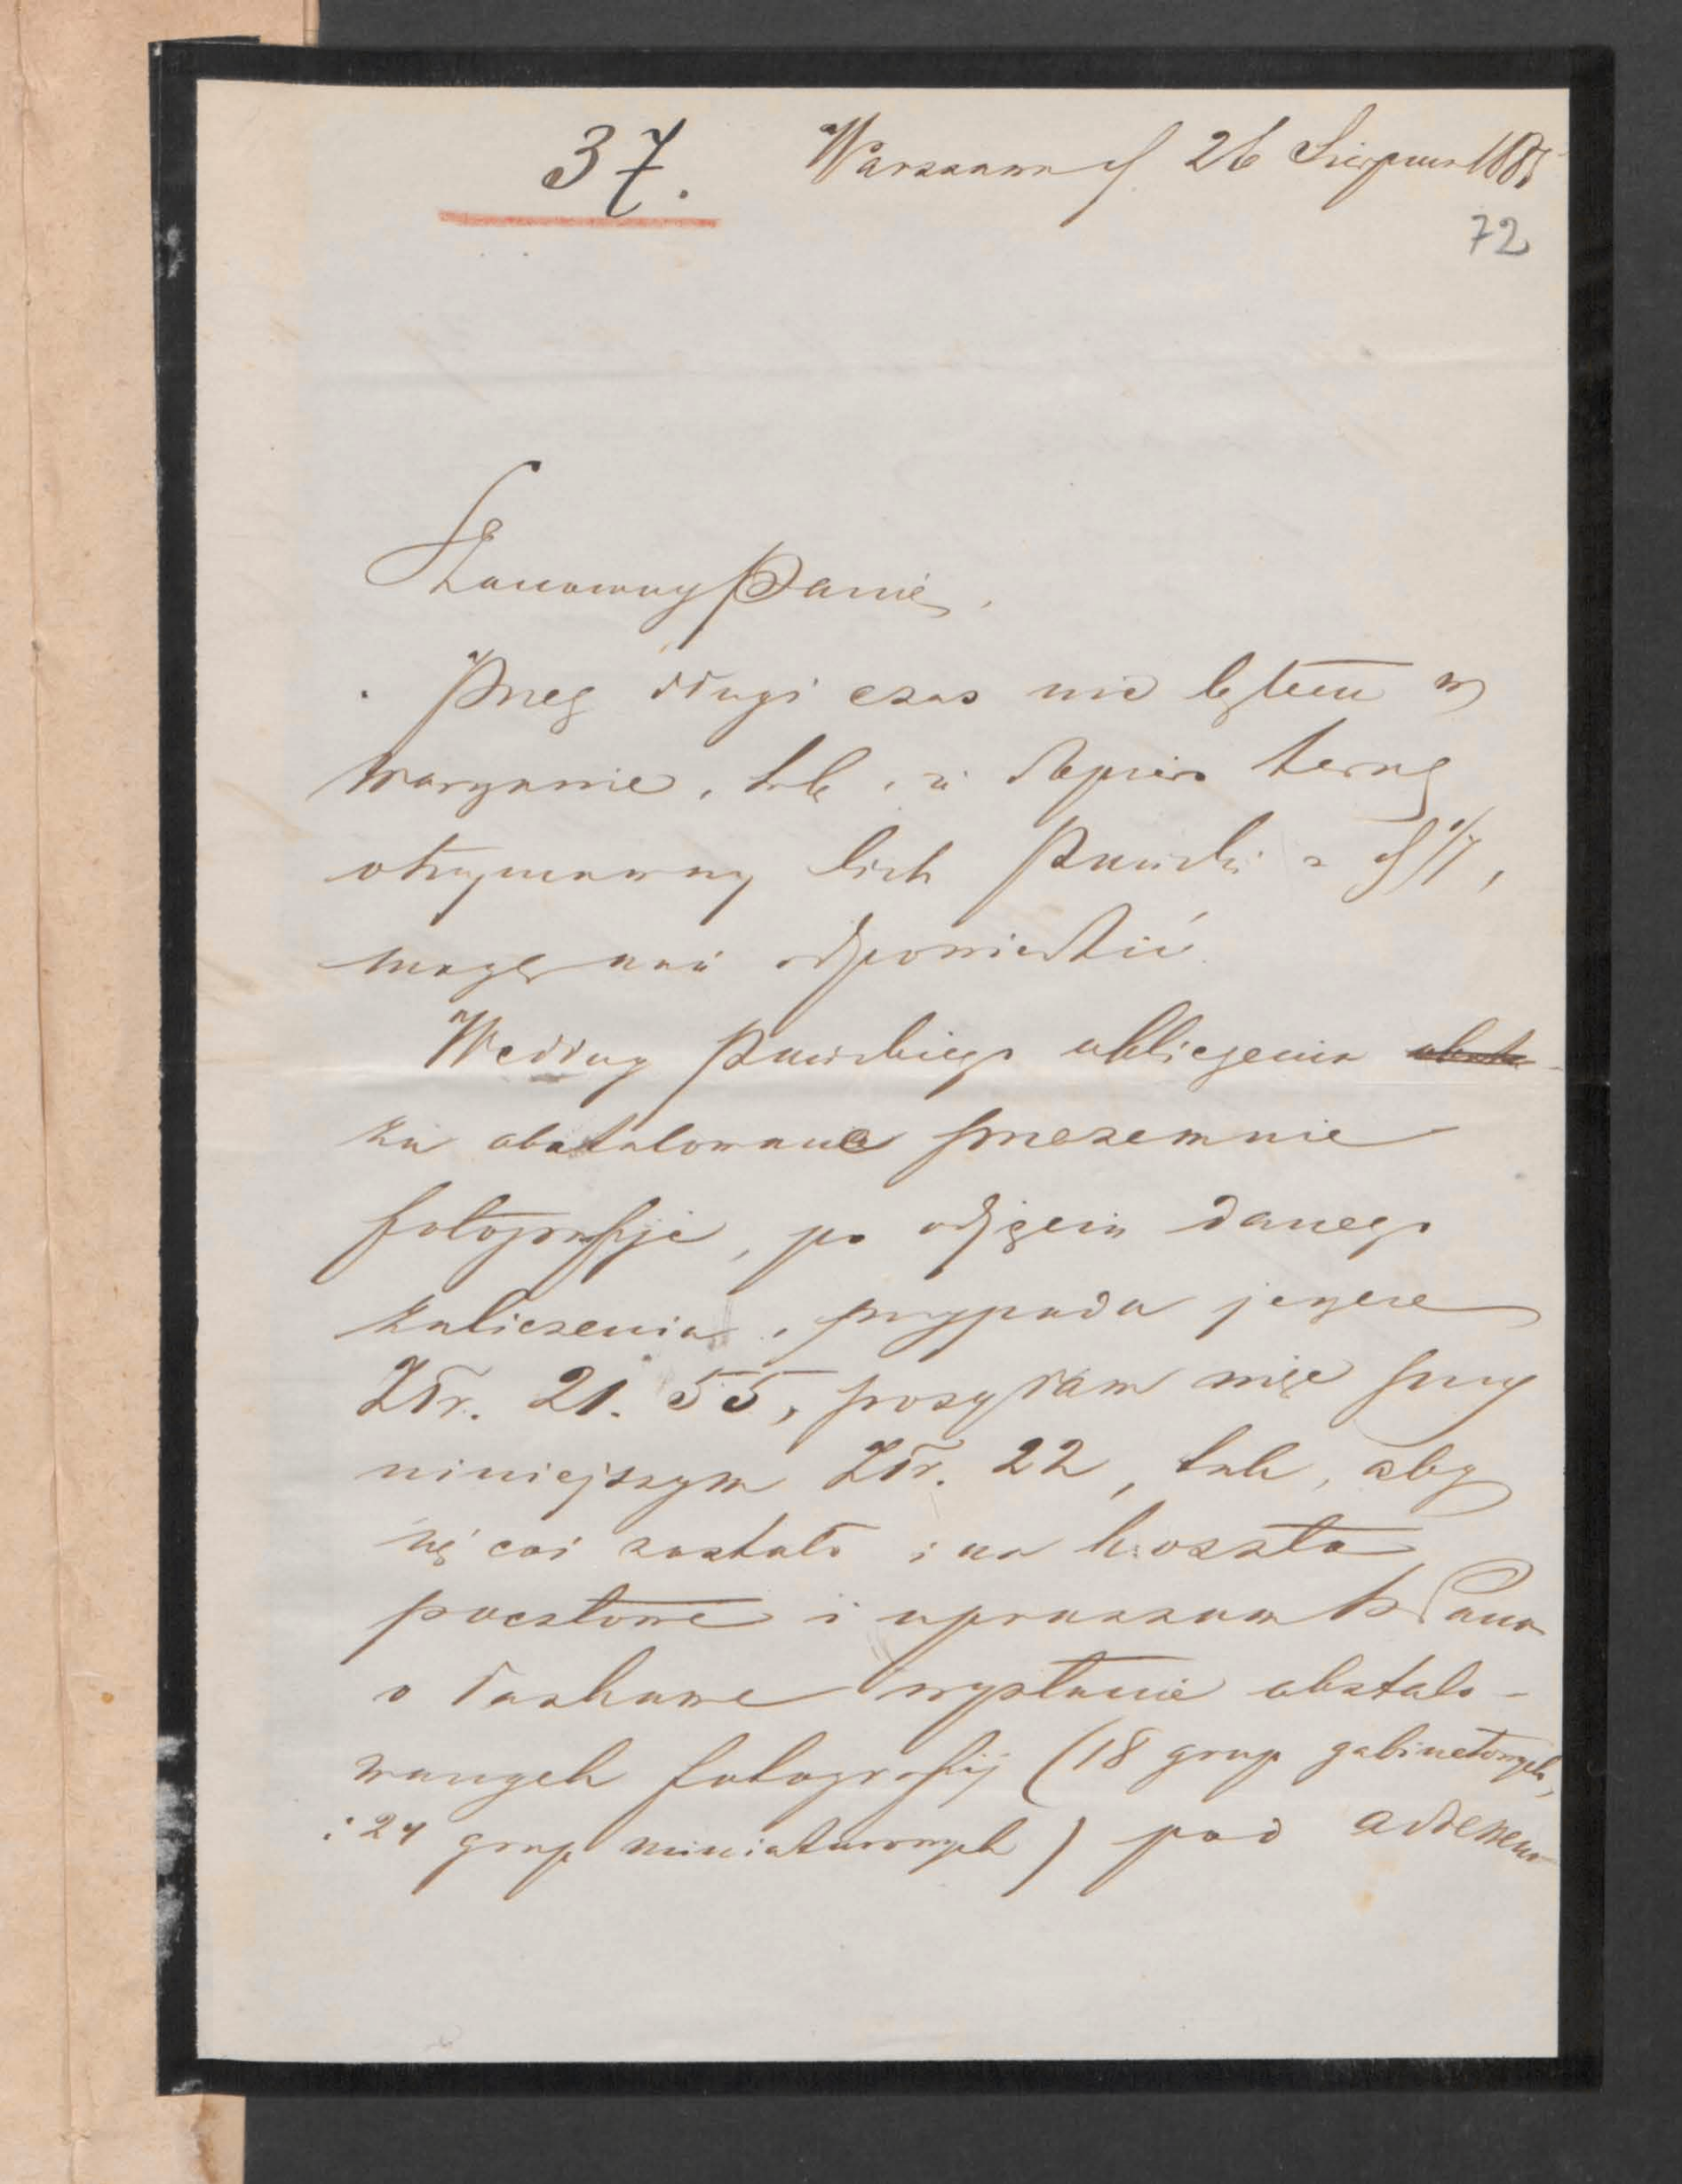 37. Warszawa d. 26 Sierpnia
72
Szanowny Panie,
Przez długi czas nie byłem w
Warszawie, tak, iż dopiero teraz
otrzymawszy list Pański z d
mogę nań odpowiedzieć.
Według Pańskiego obliczenia
za obstalowane przezemnie
fotografije, po odjęciu danego
zaliczenia, przypada jeszcze
Złr. 21.55, posyłam więc przy
niniejszym Złr. 22, tak, aby
się coś zostało i na koszta
pocztowe i upraszam Pana
o łaskawe wysłanie obstalo-
wanych fotografij (18 grup gabinetowych,
i 24 grup miniaturowych) pod adresem